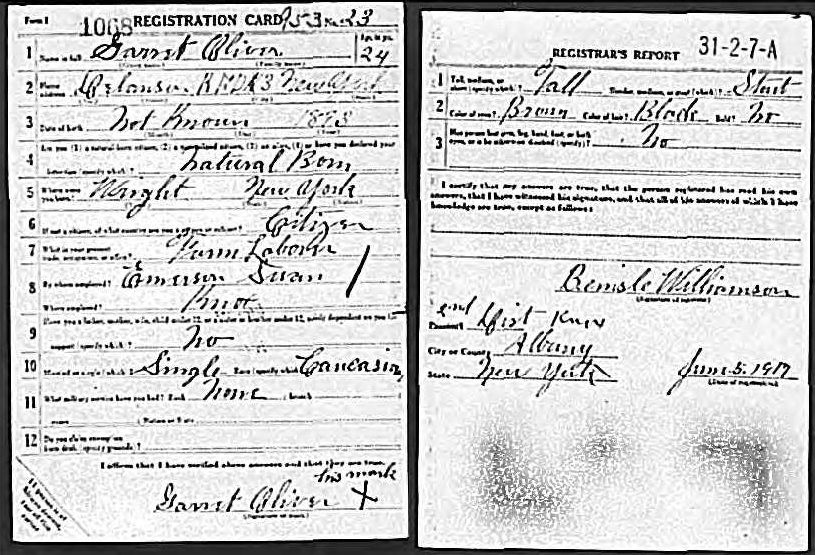 Form 1 1068 REGISTRATION CARD 953 No. 23
1 Name in full Garret Oliver Age, in yrs. 24
2 Home address Delanson RFD#3 New York
3 Date of birth Not Known 1893
4 Are you (1) a natural-born citizen, (2) a naturalized citizen, (3) an alien, (4) or have you declared your
intention (specify which)? Natural Born
5 Where were you born? Wright New York
6 If not a citizen, of what country are you a citizen or subject? Citizen
7 What is your present trade, occupation, or office? Farm Laborer
8 By whom employed? Emerson Swan
Where employed? Knox
9 Have you a father, mother, wife, child under 12, or a sister or brother under 12, solely dependent on you for
support (specify which)? No
10 Married or single (which)? Single Race (specify which)? Caucasian
11 What military service have you had? Rank None branch
years Nation or State
12 Do you claim exemption from draft (specify grounds)?
I affirm that I have verified above answers and that they are true.
his mark
Garret Oliver X
(Signature or mark)
REGISTRAR'S REPORT 31-2-7-A
1 Tall, medium, or short (specify which)? Tall Slender, medium, or stout (which)? Stout
2 Color of eyes? Brown Color of hair? Black Bald? No
3 Has person lost arm, leg, hand, foot, or both eyes, or is he otherwise disabled (specify)? No
I certify that my answers are true, that the person registered has read his own
answers, that I have witnessed his signature, and that all of his answers of which I have
knowledge are true, except as follows:
Williamson
(Signature of registrar)
Precinct 2nd Dist - Knox
City or County Albany
State New York June 5. 1917
(Date of registration)